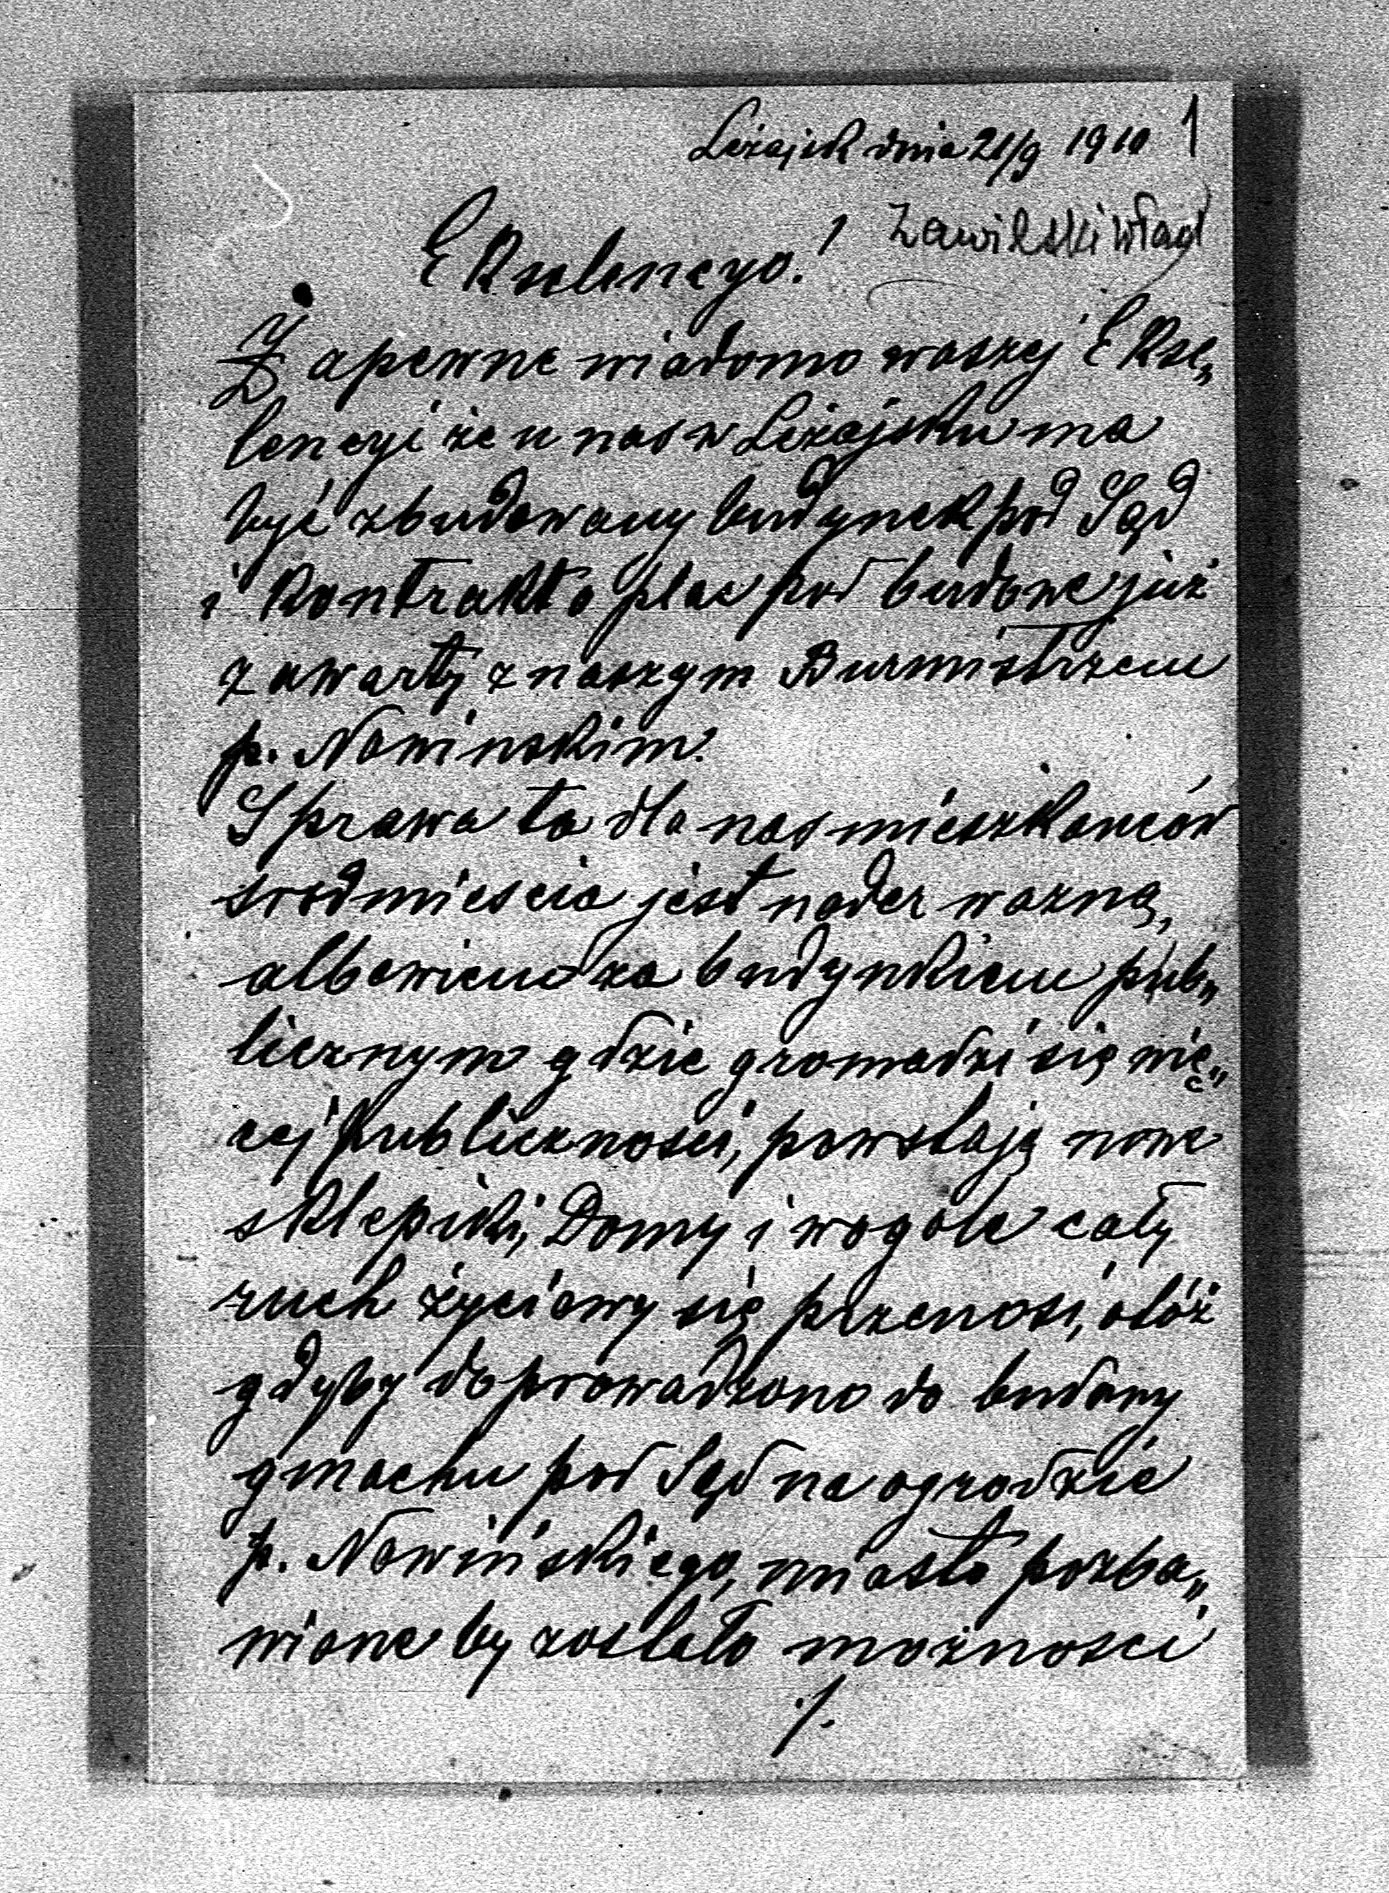 Leżajsk dnia 21/9 1910 1
Zawilski Wład
Ekselencyo!
Zapewne wiadomo waszej Ekse„
lencyi że u nas w Leżajsku ma
być zbudowany budynek pod Sąd
i kontrakt o plac pod budowę już
zawarty z naszym Burmistrzem
p. Nowinskim.
Sprawa ta dla nas mieszkańców
srodmiescia jest nader wazną,
albowiem za budynkiem pub„
licznym gdzie gromadzi się wię„
cej publicznosci, powstają nowe
sklepiki, Domy i wogole cały
ruch życiowy się przenosi, otóż
gdyby doprowadzono do budowy
gmachu pod Sąd na ogrodzie
p. Nowińskiego, miasto pozba„
wione by zostało możnosci
./.